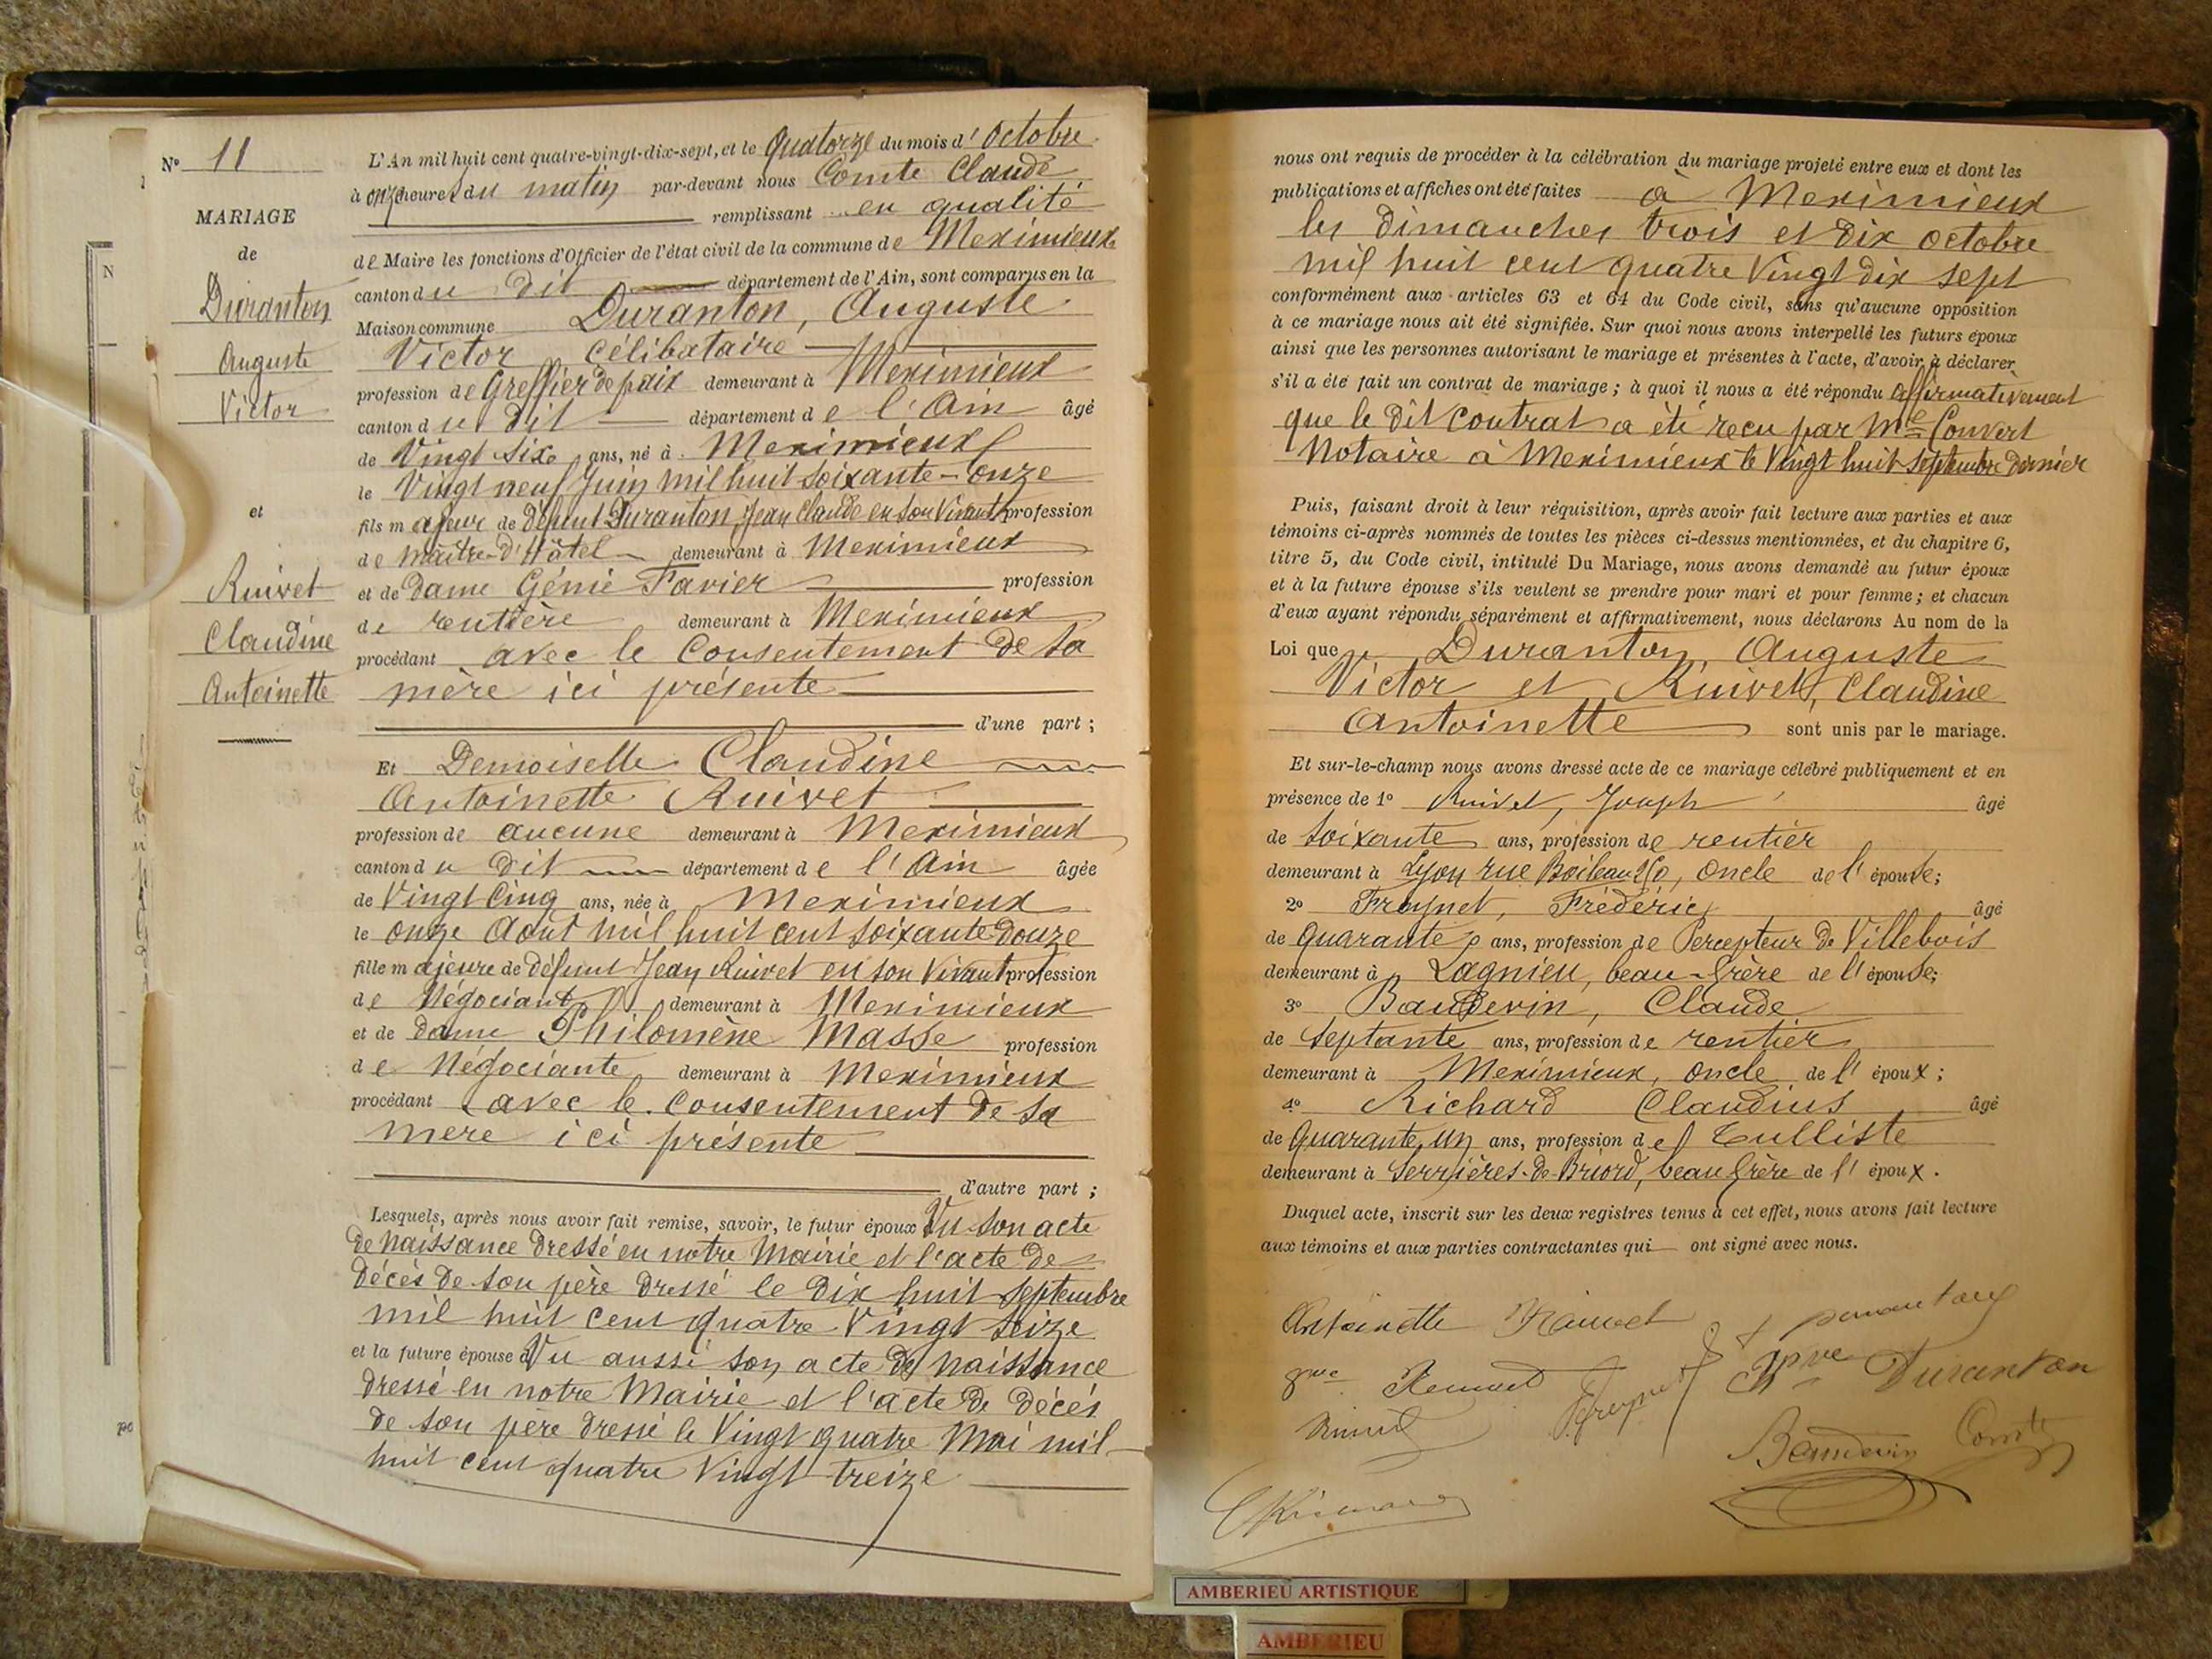 N° 11
MARIAGE
de
Duranton
Auguste
Victor
et
Ruivet
Claudine
Antoinette
L'An mil huit cent quatre-vingt-dix-sept, et le quatorze du mois d'Octobre
à onze heures du matin par-devant nous Comte Claude
remplissant en qualité
de Maire les fonctions d'Officier de l'état civil de la commune de Meximieux
canton du dit département de l'Ain, sont comparus en la
Maison commune Duranton, Auguste
Victor célibataire
profession de Greffier de paix demeurant à Meximieux
canton du dit département de l'Ain âgé
de Vingt six ans, né à Meximieux
le Vingt neuf Juin mil huit soixante-onze
fils majeur de défunt Duranton Jean Claude en son vivant profession
de Maître-d'Hôtel demeurant à Meximieux
et de Dame Génie Favier profession
de rentière demeurant à Meximieux
procédant avec le Consentement de sa
mère ici présente
d'une part ;
Et Demoiselle Claudine
Antoinette Ruivet
profession de aucune demeurant à Meximieux
canton du dit département de l'Ain âgée
de Vingt Cinq ans, née à Meximieux
le onze Aout mil huit cent soixante douze
fille majeure de défunt Jean Ruivet en son vivant profession
de Négociant demeurant à Meximieux
et de Dame Philomène Masse profession
de Négociante demeurant à Meximieux
procédant avec le consentement de sa
mere ici présente
d'autre part ;
Lesquels, après nous avoir fait remise, savoir, le futur époux Vu son acte
de naissance dressé en notre Mairie et l'acte de
décès de son père dressé le dix huit Septembre
mil huit cent quatre Vingt seize
et la future épouse d Vu aussi son acte de naissance
dressé en notre Mairie et l'acte de décés
de son père dressé le Vingt quatre Mai mil
huit cent quatre Vingt treize
nous ont requis de procéder à la célébration du mariage projeté entre eux et dont les
publications et affiches ont été faites à Meximieux
les Dimanches trois et dix octobre
mil huit cent quatre Vingt dix sept
conformément aux articles 63 et 64 du Code civil, sans qu'aucune opposition
à ce mariage nous ait été signifiée. Sur quoi nous avons interpellé les futurs époux
ainsi que les personnes autorisant le mariage et présentes à l'acte, d'avoir à déclarer
s'il a été fait un contrat de mariage ; à quoi il nous a été répondu affirmativement
que le dit Contrat a été recu par Me Convert
Notaire à Meximieux le Vingt huit Septembre dernier
Puis, faisant droit à leur réquisition, après avoir fait lecture aux parties et aux
témoins ci-après nommés de toutes les pièces ci-dessus mentionnées, et du chapitre 6,
titre 5, du Code civil, intitulé Du Mariage, nous avons demandé au futur époux
et à la future épouse s'ils veulent se prendre pour mari et pour femme ; et chacun
d'eux ayant répondu séparément et affirmativement, nous déclarons Au nom de la
Loi que Duranton Auguste
Victor et Ruivet, Claudine
Antoinette sont unis par le mariage.
Et sur-le-champ nous avons dressé acte de ce mariage célébré publiquement et en
présence de 1° Ruivet, Joseph âgé
de soixante ans, profession de rentier
demeurant à Lyon rue Boileau, oncle de l'épouse;
2° Freynet, Frédéric âgé
de quarante ans, profession de Percepteur de Villebois
demeurant à Lagnieu, beau-frère de l'épouse;
3° Baudevin, Claude
de septante ans, profession de rentier
demeurant à Meximieux, oncle de l'époux ;
4° Richard Claudius âgé
de quarante un ans, profession de Tulliste
demeurant à Serrières-de-Briord, beau frère de l'époux.
Duquel acte, inscrit sur les deux registres tenus à cet effet, nous avons fait lecture
aux témoins et aux parties contractantes qui ont signé avec nous.
Antoinette Ruivet
Vve Duranton
Freynet
Baudevin Comte
AMBERIEU ARTISTIQUE
AMBERIEU